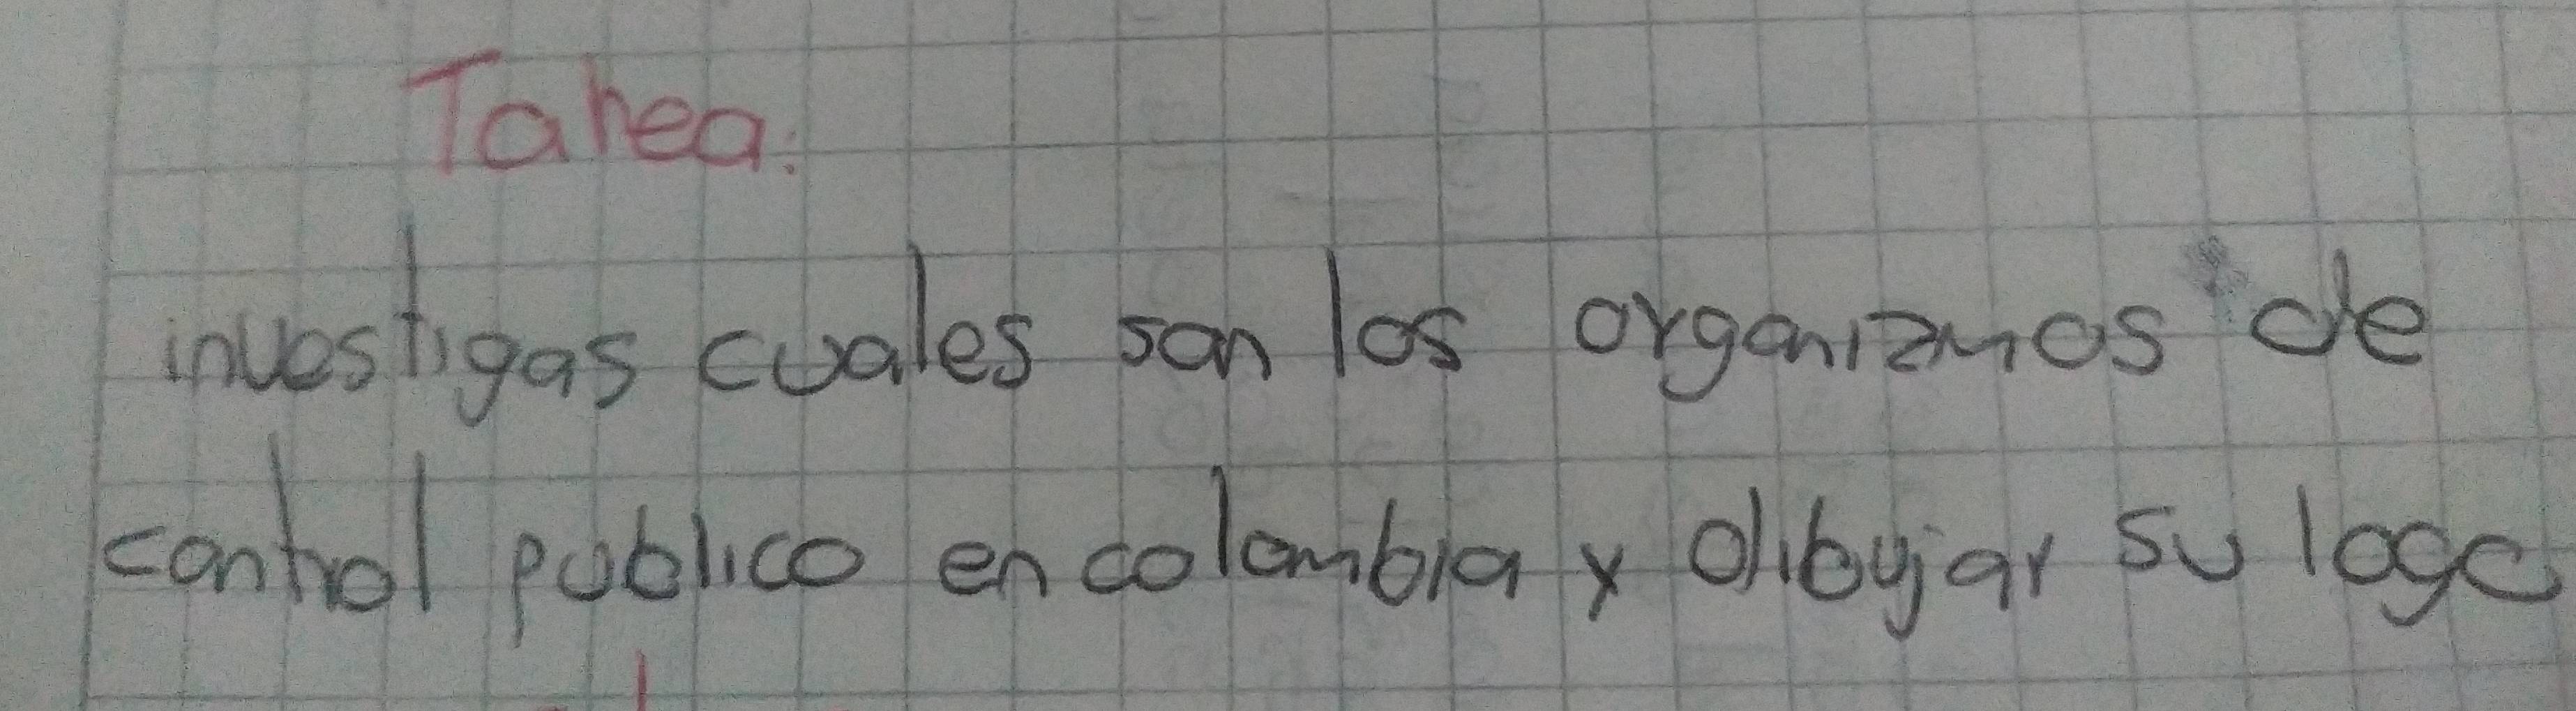 Tarea:
investigas cuales son los organizmos de
control publico en colombia y dibujar su logo